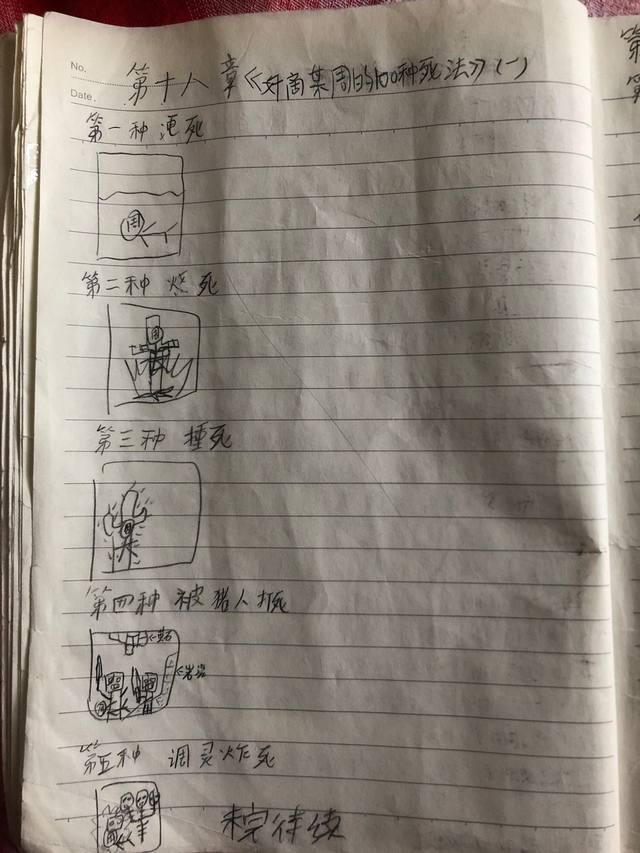 No.
第十八章《奸商某周的100种死法》(一)
Date.
第一种 淹死
周
第二种 烧死
周
第三种 捶死
周
第四种 被猪人打死
周
第五种 凋灵炸死
未完待续